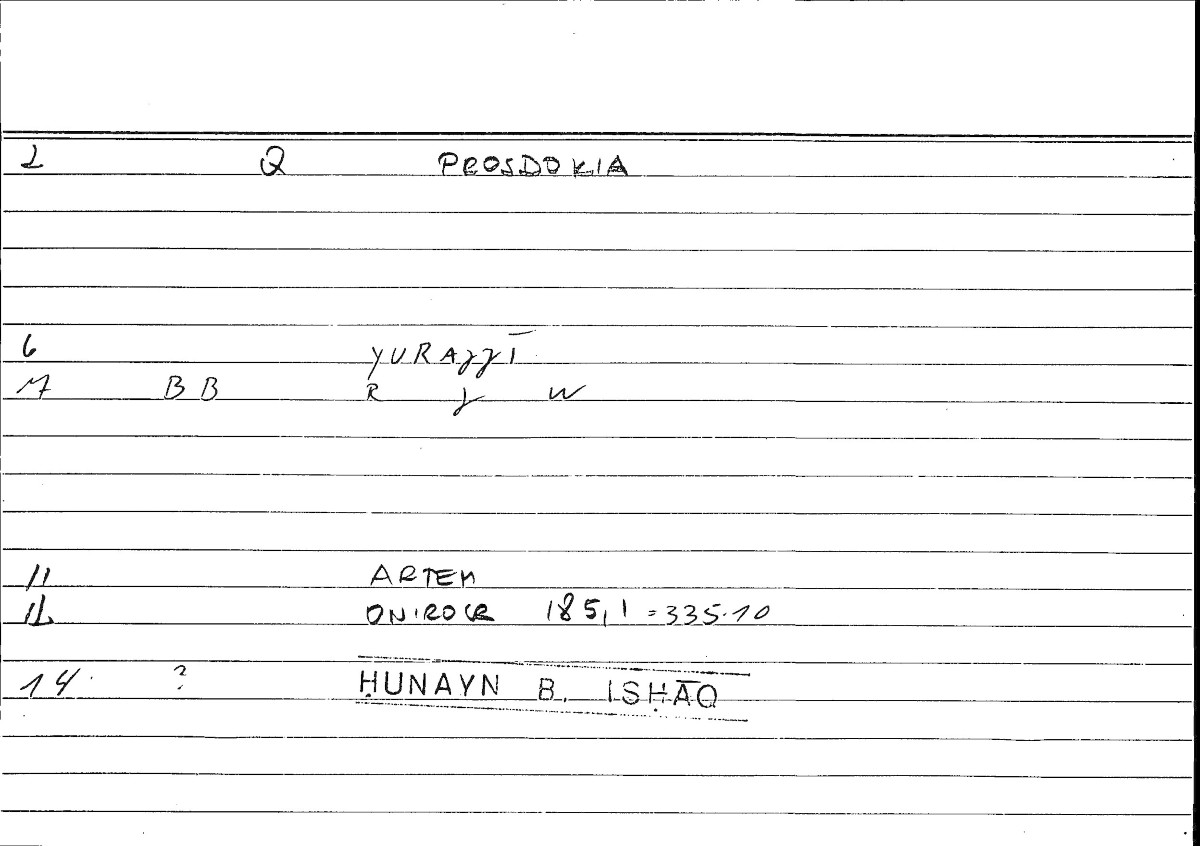 2 Q PROSDOKIA
6 YURAJJĪ
M BB R J W
11 ARTEM
12 ONIROCR 185,1 = 335.10
14 ? ḤUNAYN B. ISḤĀQ